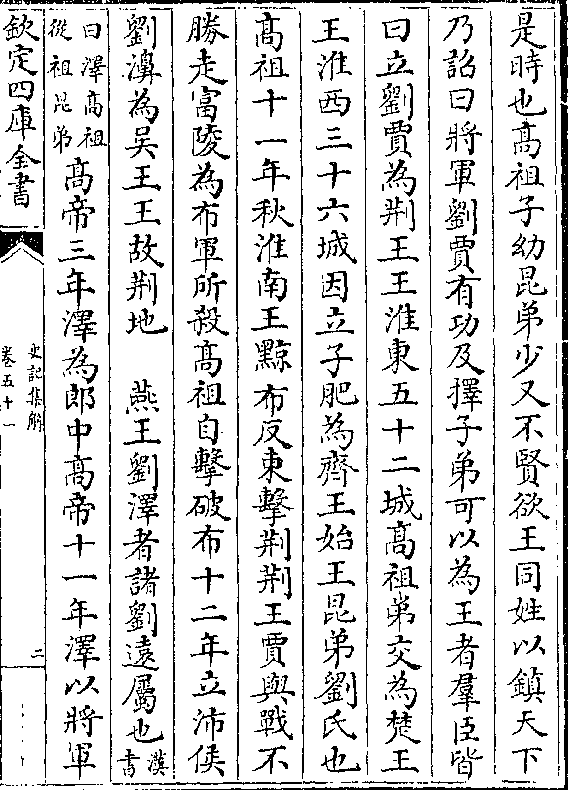 是時也髙祖子幼昆弟少又不賢欲王同姓以鎮天下
乃詔曰將軍劉賈有功及擇子弟可以為王者羣臣皆
曰立劉賈為荆王王淮東五十二城髙祖弟交為楚王
王淮西三十六城因立子肥為齊王始王昆弟劉氏也
髙祖十一年秋淮南王黥布反東擊荆荆王賈與戰不
勝走富陵為布軍所殺髙祖自擊破布十二年立沛侯
劉濞為吴王王故荆地　燕王劉澤者諸劉逺屬也漢書
曰澤髙祖從祖昆弟髙帝三年澤為郎中髙帝十一年澤以將軍
欽定四庫全書
史記集解
卷五十一
二